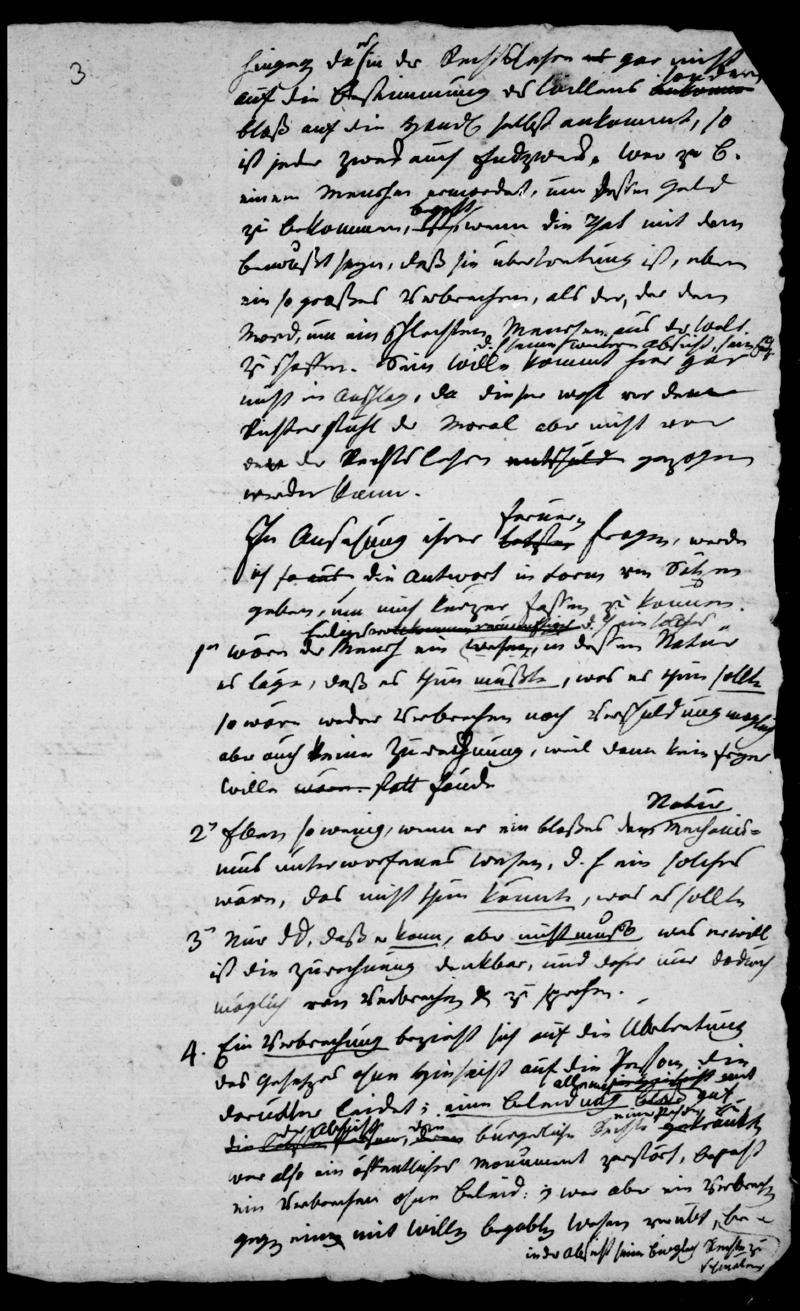 3
hingegen da es in der Rechtslehre gar nicht
auf die Bestimmung des Willens sondern
bloß auf die Handl selbst ankommt, so
ist jeder Zweck auch Endzweck. Wer z. B.
einen Menschen ermordet, um dessen Geld
zu bekommen, begeht, wenn die That mit dem
bewußtseyn, daß sie übertretung ist, eben
ein so großes Verbrechen, als der, der den
Mord, um ein schlechten Menschen aus der Welt
d. h. seine weitere Absicht, sein
zu schaffen. Sein Wille kommt hier gar
nicht in Anschlag, da dieser wohl vor den
Richterstuhl der Moral aber nicht vor
der Rechtslehre gezogen
werden kann.
In Ansehung ihrer fernern letzten Fragen, werde
ich die Antwort in Form von Sätzen
geben, um mich kürzer fassen zu können.
heiliges vollkommen vernünftiges d. h. ein solches
1 wäre der Mensch ein Wesen, in dessen Natur
es läge, daß es thun müßte, was es thun sollte
so wäre weder Verbrechen noch Verschuldung möglich
aber auch keine Zurechnung, weil dann kein freyer
Wille wäre statt fände
Natur
2 Eben so wenig, wenn er ein bloßes dem Mechanis=
mus unterworfenes Wesen, d. h ein solches
wäre, das nicht thun könnte, was es sollte
3 Nur dd, daß er kann, aber nicht muß was er will
ist die Zurechnung denkbar, und daher nur dadurch
möglich von Verbrechen zu sprechen.
4. Ein Verbrechung bezieht sich auf die Übertretung
des Gesetzes ohne Hinsicht auf die Person, die
darunter leidet; eine Beleidung
der Absicht, bürgerliche Rechte gekränkt
wer also ein öffentliches Monument zerstört, begeht
ein Verbrechen ohne Beleid: wer aber ein Verbrechen
gegen eine mit Willen begabtes Wesen verübt, be
in der Absicht seine bürgerl Rechte zu
schmälern